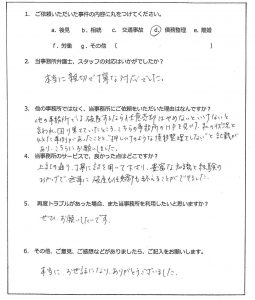 1. ご依頼いただいた事件の内容に丸をつけてください。
a. 後見 b. 相続 c. 交通事故 d. 債務整理 e. 離婚
f. 労働 g. その他 ( )
2. 当事務所弁護士、スタッフの対応はいかがでしたか?
本当に親切で丁寧な対応でした。
3. 他の事務所ではなく、当事務所にご依頼をいただいた理由はなんですか?
他の事務所で、破産するなら仕事を辞めないといけないと
言われ、困り果てていたところ、こちらの事務所のHPを見つけ、私の状況と
と記載が
あり、こちらにお願いしました。
4. 当事務所のサービスで、良かった点はどこですか?
上記の通り、丁寧に話を聞いて下さり、豊富な知識と経験の
おかげで無事に破産も仕事も
5. 再度トラブルがあった場合、また当事務所を利用したいと思いますか?
ぜひお願いしたいです。
6. その他、ご意見、ご感想などがありましたら、ご記入をお願いします。
本当にお世話になり、ありがとうございました。